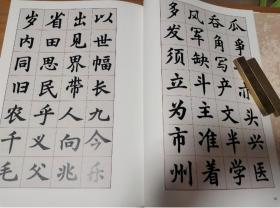 瓜争头兴医
吞角写产文半学
风军缺斗主准着
多发须立为市州
以世幅长九今乐
出见界带人向兆
省田思民乎义父
岁内同旧农千毛